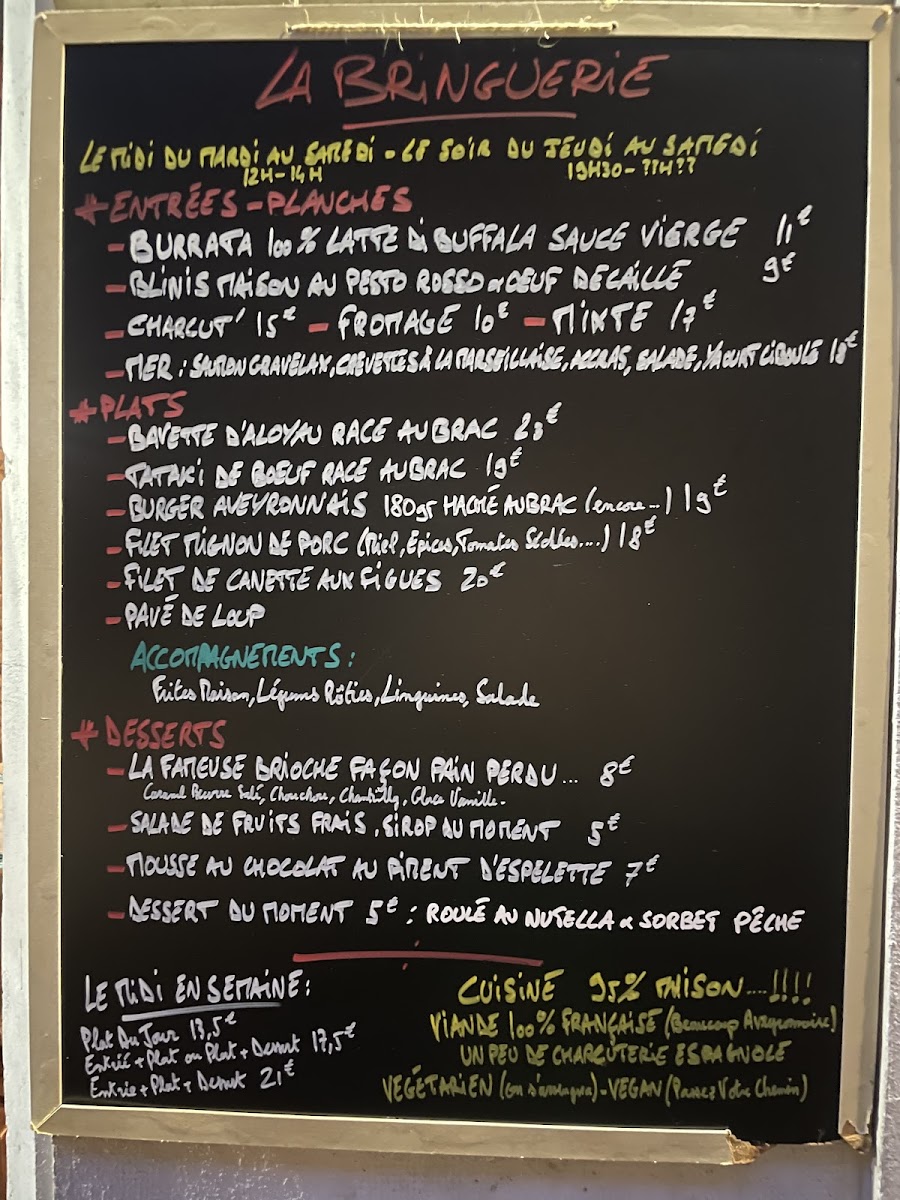 LA BRINGUERIE
LE MIDI DU MARDI AU SAMEDI - LE SOIR DU JEUDI AU SAMEDI
12H-14H 19H30-??H??
# ENTRÉES - PLANCHES
- BURRATA 100% LATTE DI BUFFALA SAUCE VIERGE 11€
- BLINIS MAISON AU PESTO ROSSO & OEUF DE CAILLE 9€
- CHARCUT' 15€ - FROMAGE 10€ - MIXTE 17€
- MER : SAUMON GRAVELAX, CREVETTES À LA MARSEILLAISE, ACCRAS, SALADE, YAOURT CIBOULE 18€
# PLATS
- BAVETTE D'ALOYAU RACE AUBRAC 23€
- TATAKI DE BOEUF RACE AUBRAC 19€
- BURGER AVEYRONNAIS 180gr HACHÉ AUBRAC (encore...) 19€
- FILET MIGNON DE PORC (Miel, Epices, Tomates Séchées....) 18€
- FILET DE CANETTE AUX FIGUES 20€
- PAVÉ DE LOUP
ACCOMPAGNEMENTS :
Frites Maison, Légumes Rôties, Linguines, Salade
# DESSERTS
- LA FAMEUSE BRIOCHE FAÇON PAIN PERDU... 8€
Caramel Beurre Salé, Chouchou, Chantilly, Glace Vanille.
- SALADE DE FRUITS FRAIS, SIROP DU MOMENT 5€
- MOUSSE AU CHOCOLAT AU PIMENT D'ESPELETTE 7€
- DESSERT DU MOMENT 5€ : ROULÉ AU NUTELLA & SORBET PÊCHE
LE MIDI EN SEMAINE :
Plat Du Jour 13,5€
Entrée + Plat ou Plat + Dessert 17,5€
Entrée + Plat + Dessert 21€
CUISINE 95% MAISON....!!!!
VIANDE 100% FRANÇAISE (Beaucoup Aveyronnaire)
UN PEU DE CHARCUTERIE ESPAGNOLE
VEGÉTARIEN (on s'arrangera) - VEGAN (Passez Votre Chemin)